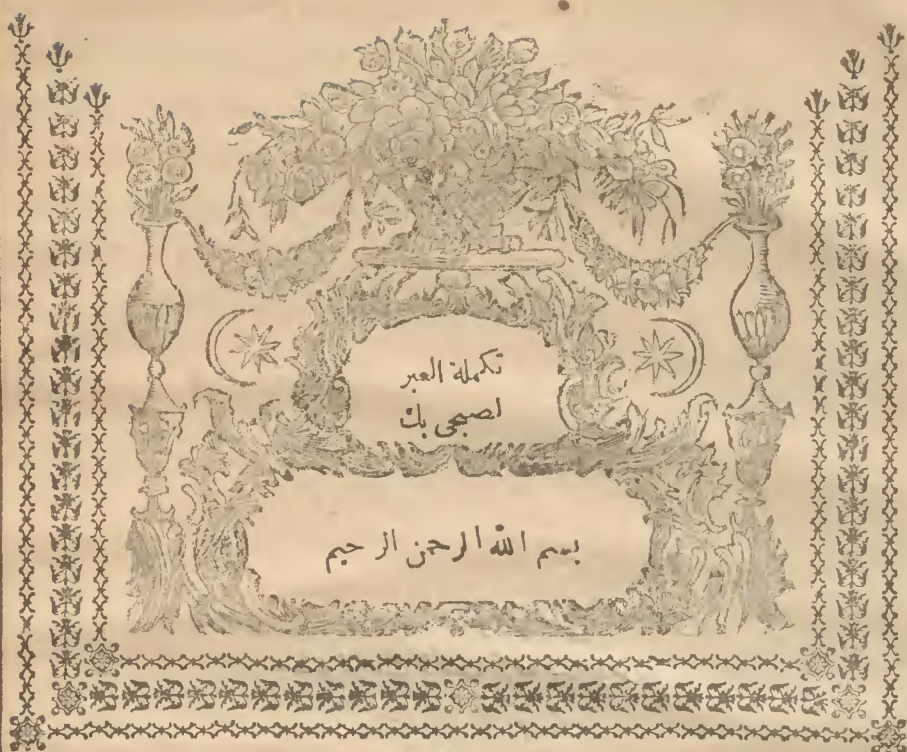 تكملة العبر
لصبحى بك
بسم الله الرحمن الرحيم